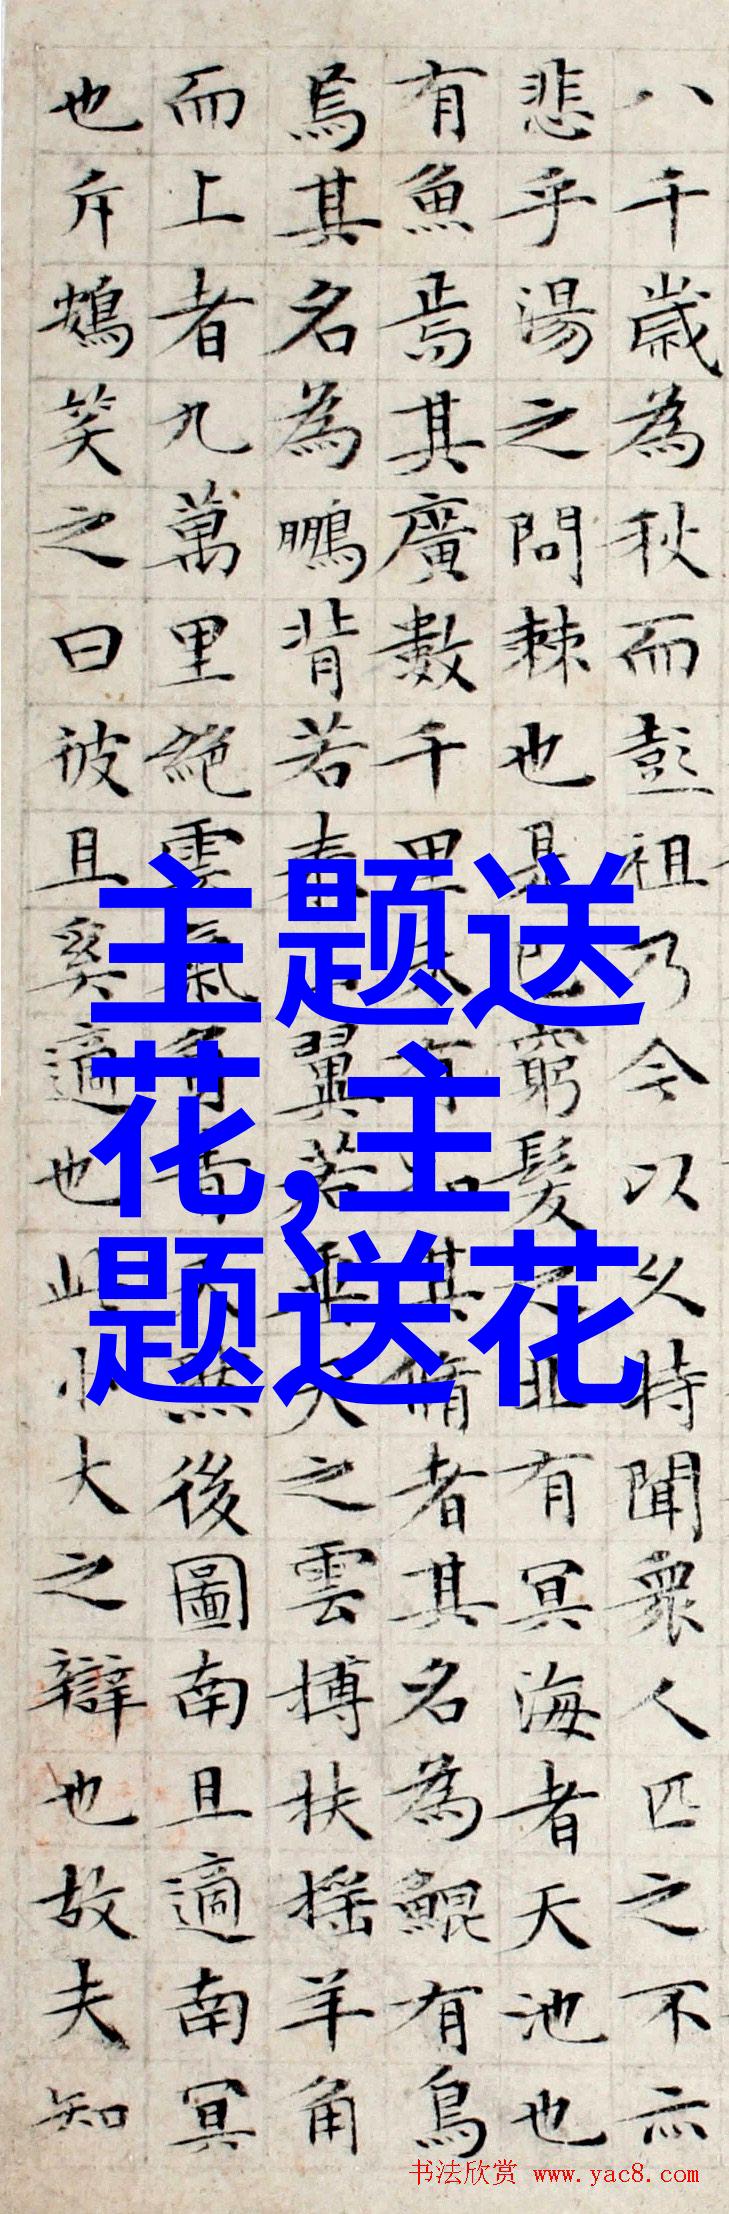 八千歲為秋而彭祖乃今以久特聞眾人匹之不亦
悲乎湯之問棘也是已窮髮之北有冥海者天池也
有魚焉其廣數千里未有知其脩者其名為鯤有鳥
焉其名為鵬背若泰山翼若垂天之雲摶扶搖羊角
而上者九萬里絕雲氣負青天然後圖南且適南冥
也斥鴳笑之曰彼且奚適也此小大之辯也故夫知
主题送
花,主
题送花
书法欣赏 www.yac8.com